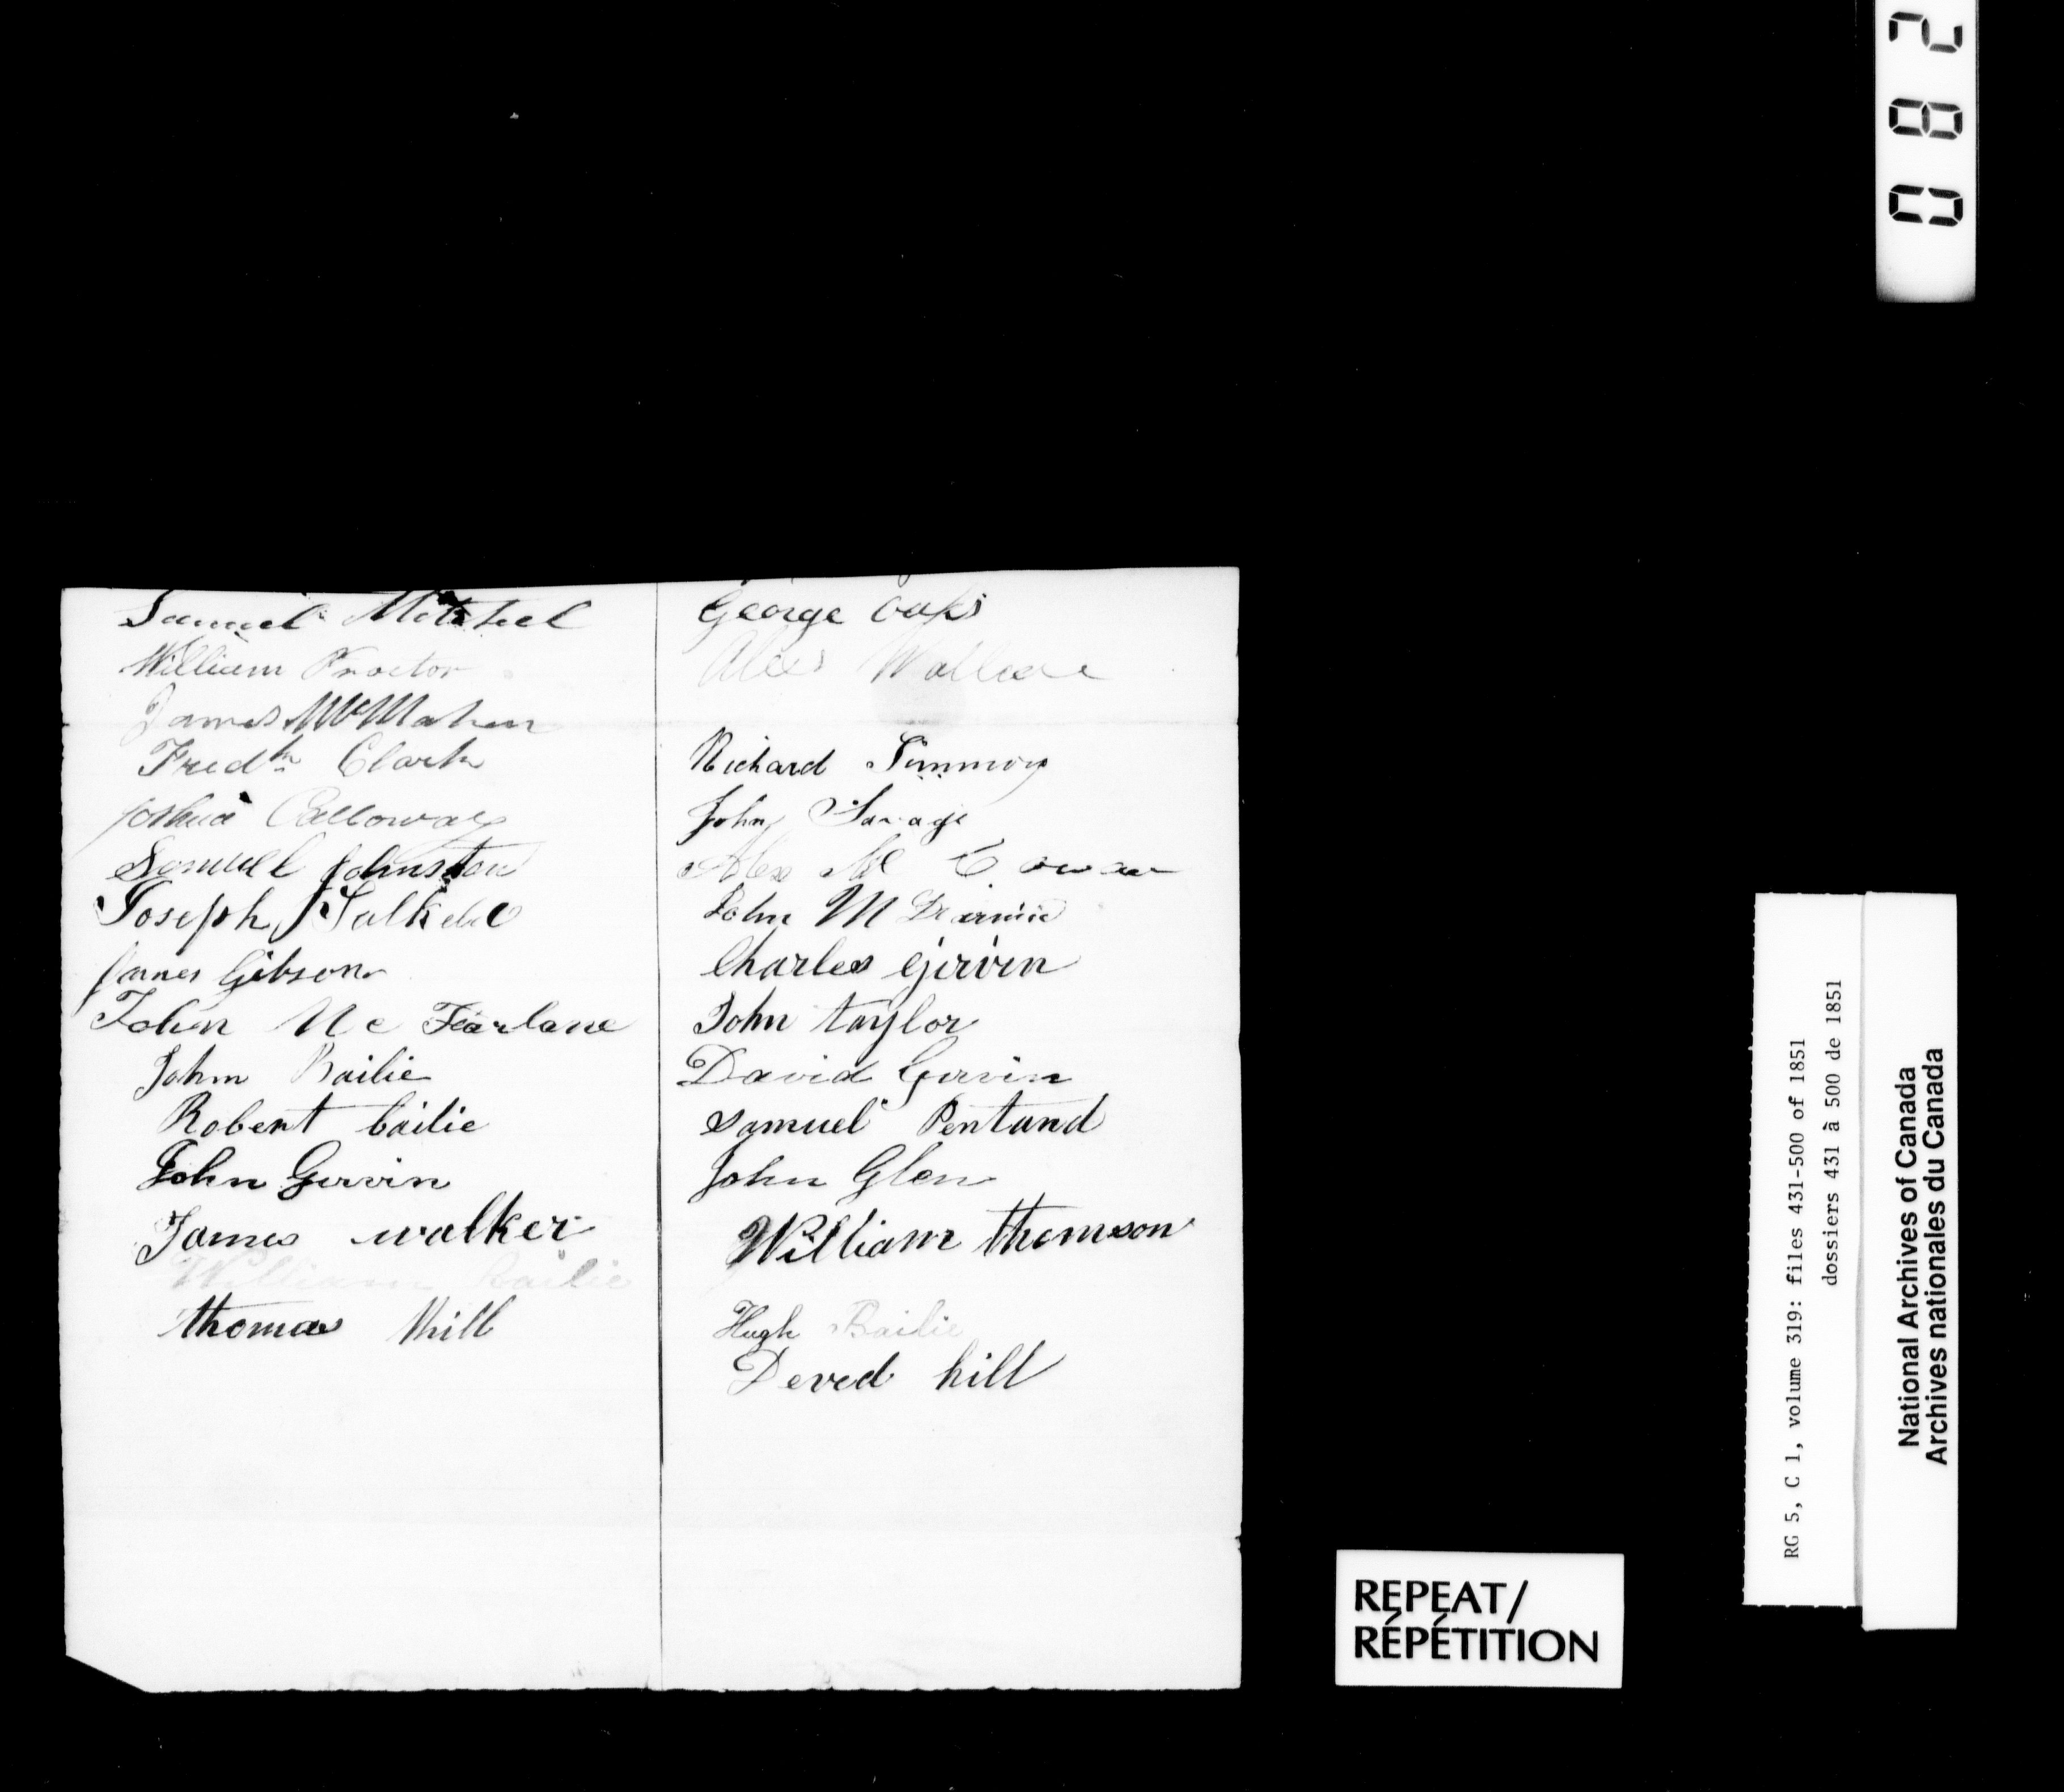 Samuel Mitchel
William Proctor
James McMahen
Fredk Clark
Joshua Calloway
Samuel Johnston
Joseph Salkeld
James Gibson
John Mc Fearlane
John Bailie
Robert bailie
John Girvin
James walker
William Bailie
thomas hill
George Oaks
Alex Wallace
Richard Simmons
John Savage
Alex Mc Cowan
John M
Charles Girvin
John taylor
David Girvin
Samuel Pentand
John Glen
William thomson
Hugh Bailie
Deved hill
082
RG 5, C 1, volume 319: files 431-500 of 1851
dossiers 431 à 500 de 1851
National Archives of Canada
Archives nationales du Canada
REPEAT/
RÉPÉTITION